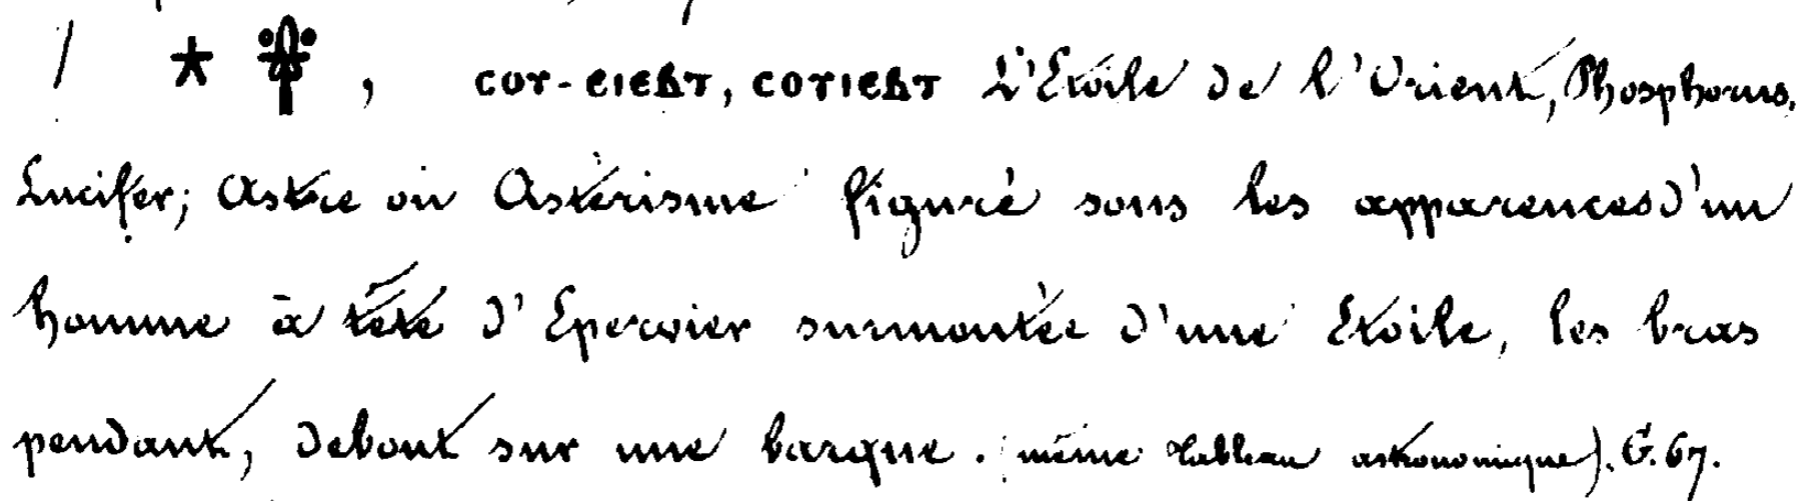 / ⋆ , ⲥⲟⲩ-ⲉⲓⲉⲃⲧ, ⲥⲟⲩⲓⲉⲃⲧ L'Étoile de l'Orient, Phosphorus,
Lucifer; Astre ou Astérisme figuré sous les apparences d'un
homme à tête d'Epervier surmontée d'une Etoile, les bras
pendant, debout sur une barque. (même tableau astronomique). G. 67.